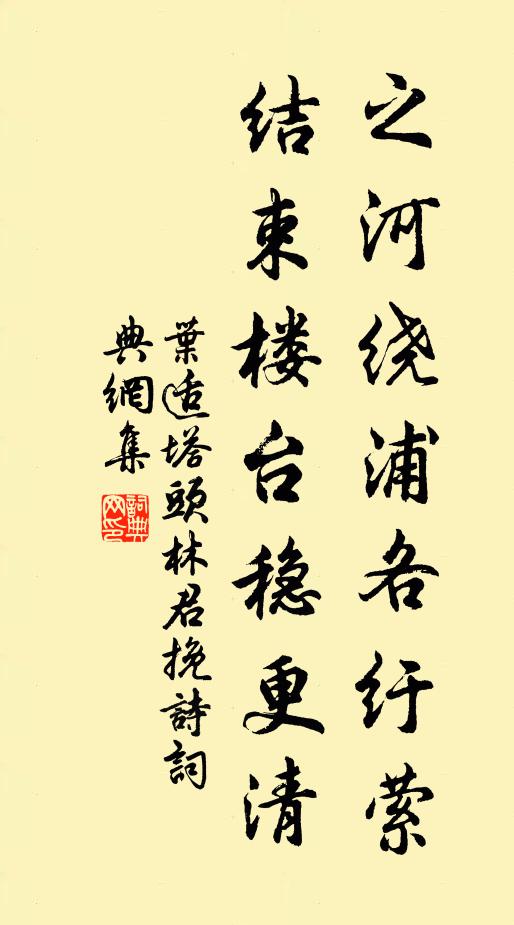 之河绕浦各纡萦
结束楼台稳更清
葉适塔頭林君挽詩詞
典網集
詞典网印